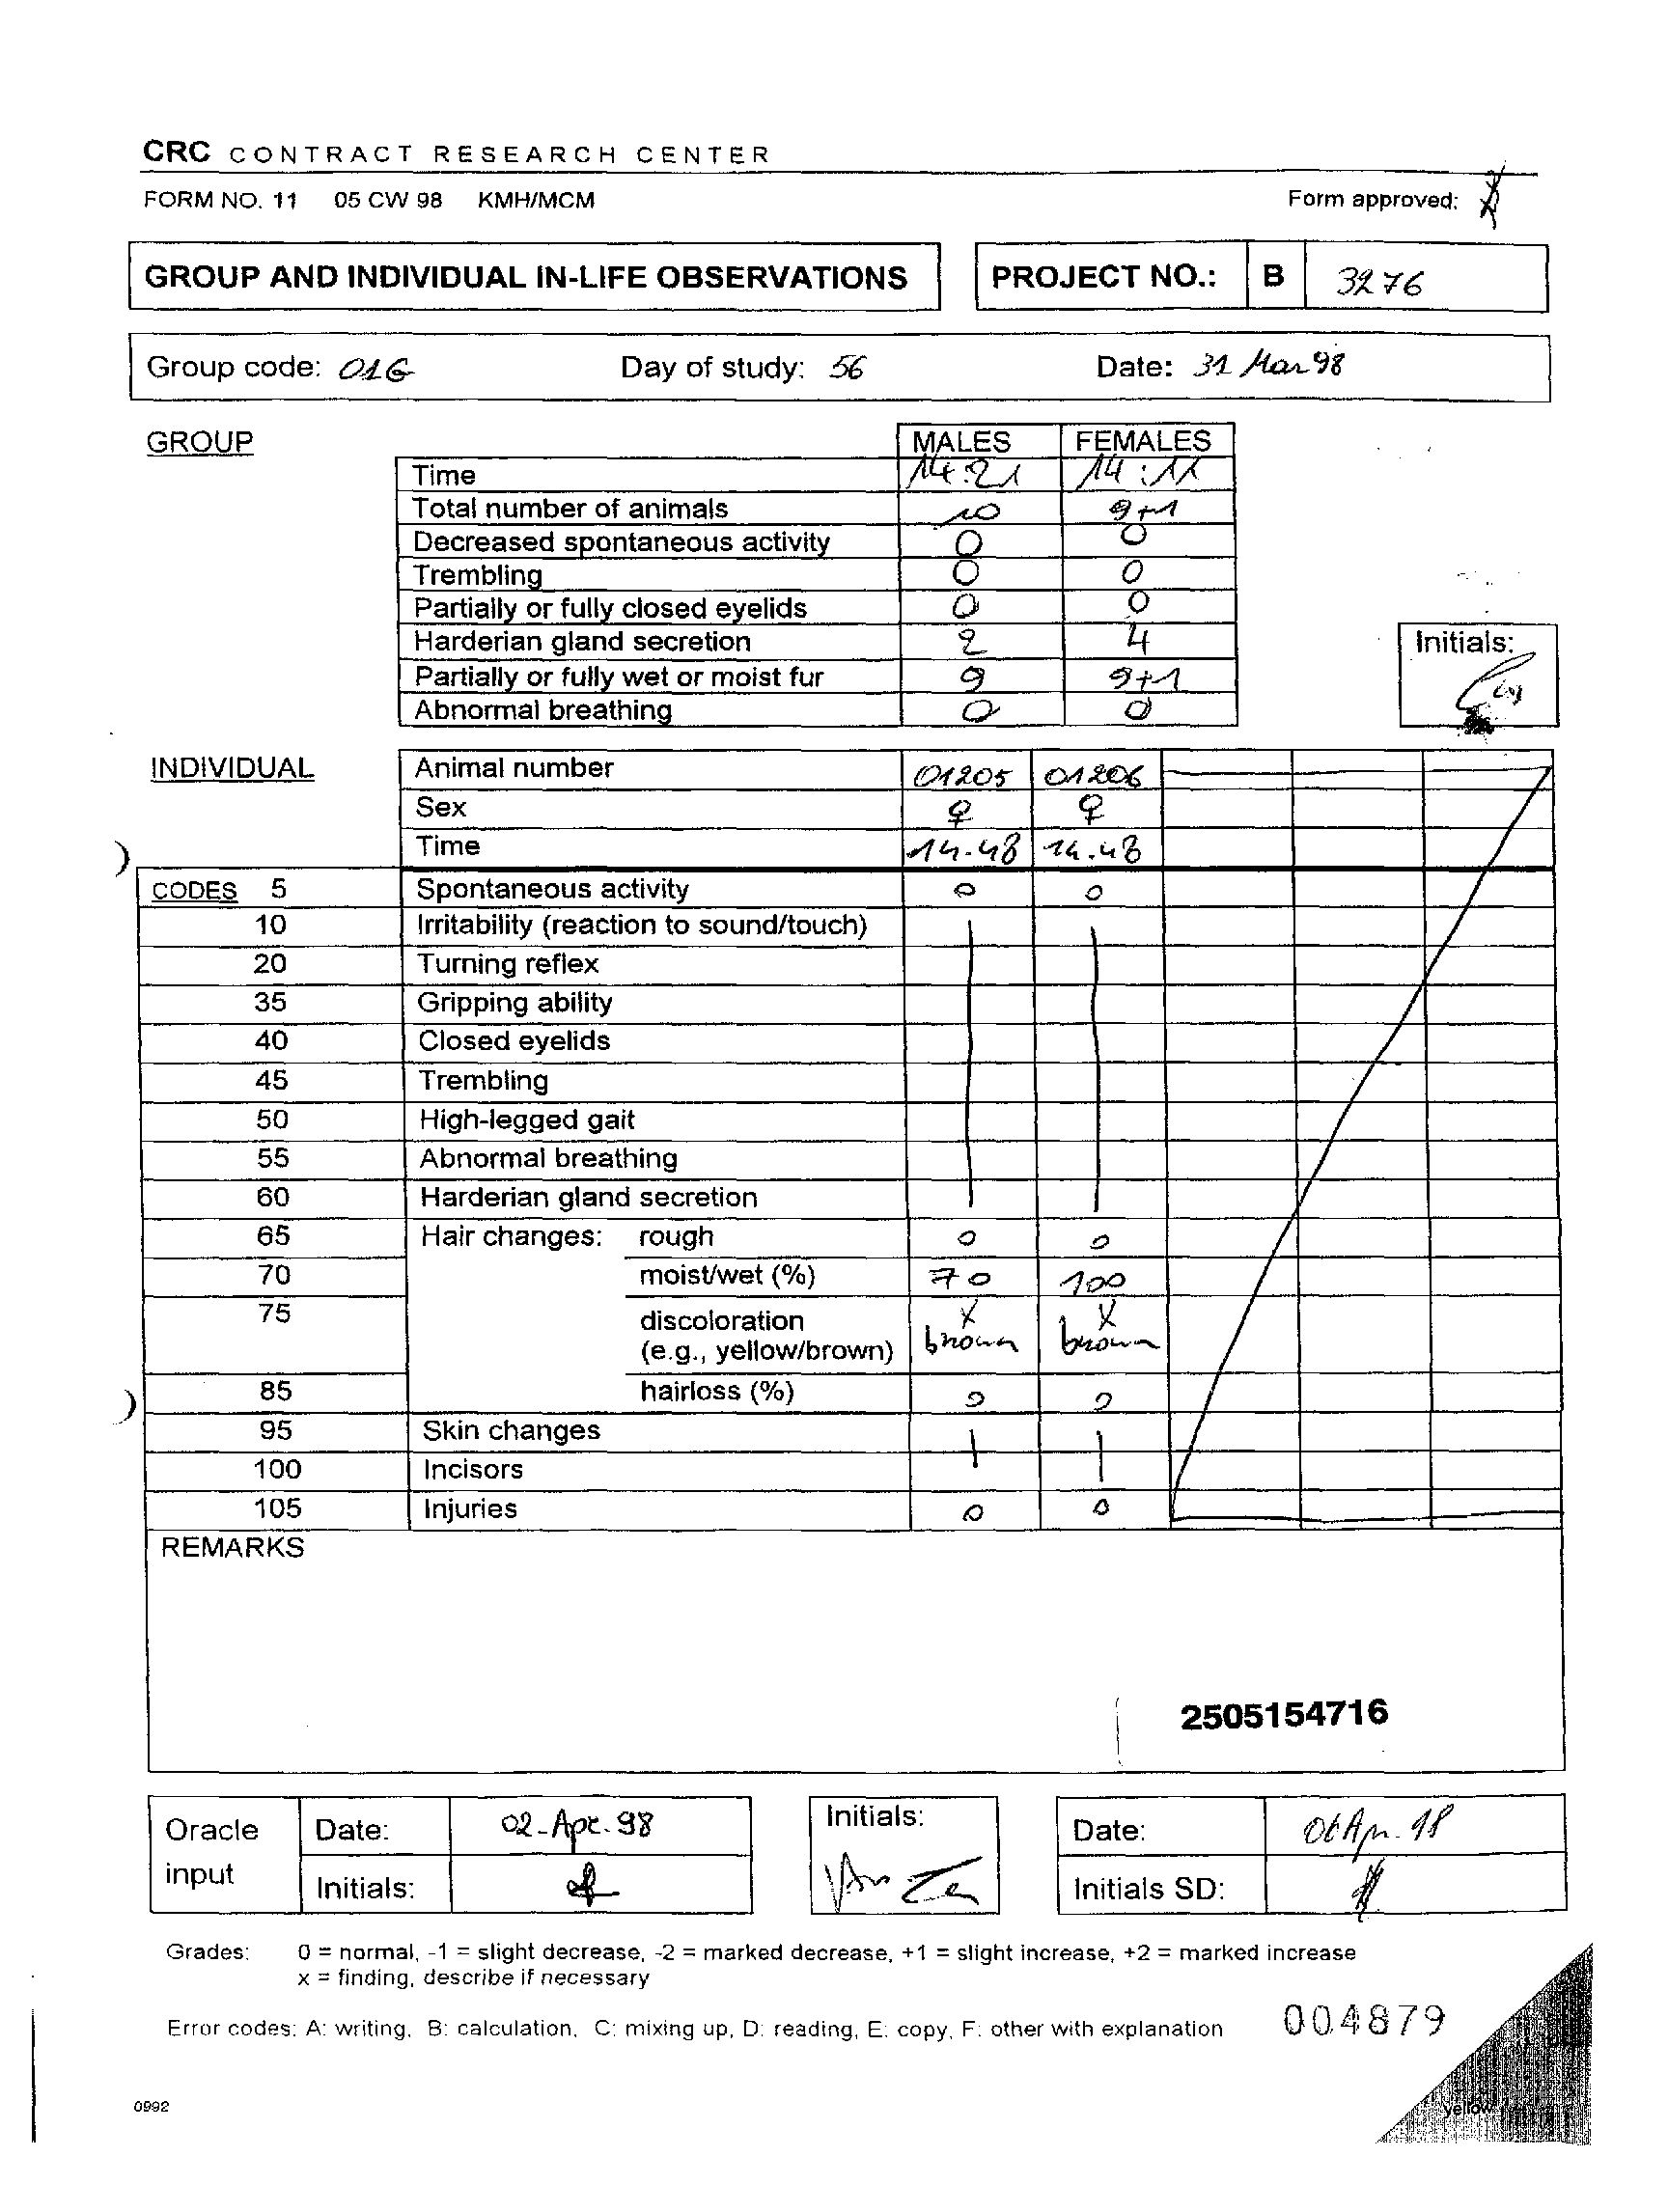 CRC CONTRACT RESEARCH CENTER
FORM NO. 11 05 CW 98 KMH/MCM Form approved:
GROUP AND INDIVIDUAL IN-LIFE OBSERVATIONS PROJECT NO.: B 3276
Group code: 01G Day of study: 56 Date: 31 Mar 98
GROUP MALES FEMALES
Time 14:21 14:11
Total number of animals 10 9+1
Decreased spontaneous activity 0 0
Trembling 0 0
Partially or fully closed eyelids 0 0
Harderian gland secretion 2 4
Initials:
Partially or fully wet or moist fur 9 9+1
Abnormal breathing 0 0
INDIVIDUAL Animal number 01205 01206
Sex ♀ ♀
Time 14.48 14.48
CODES 5 Spontaneous activity 0 0
10 Irritability (reaction to sound/touch)
20 Turning reflex
35 Gripping ability
40 Closed eyelids
45 Trembling
50 High-legged gait
55 Abnormal breathing
60 Harderian gland secretion
65 Hair changes: rough 0 0
70 moist/wet (%) 70 100
75 discoloration x x
(e.g., yellow/brown) brown brown
85 hairloss (%) 0 0
95 Skin changes
100 Incisors
105 Injuries 0 0
REMARKS
2505154716
Oracle input Date: 02-Apr.98 Initials: Date: 06 Apr. 98
Initials: Initials SD:
Grades: 0 = normal, -1 = slight decrease, -2 = marked decrease, +1 = slight increase, +2 = marked increase
x = finding, describe if necessary
Error codes: A: writing, B: calculation, C: mixing up, D: reading, E: copy, F: other with explanation
004879
0992
yellow